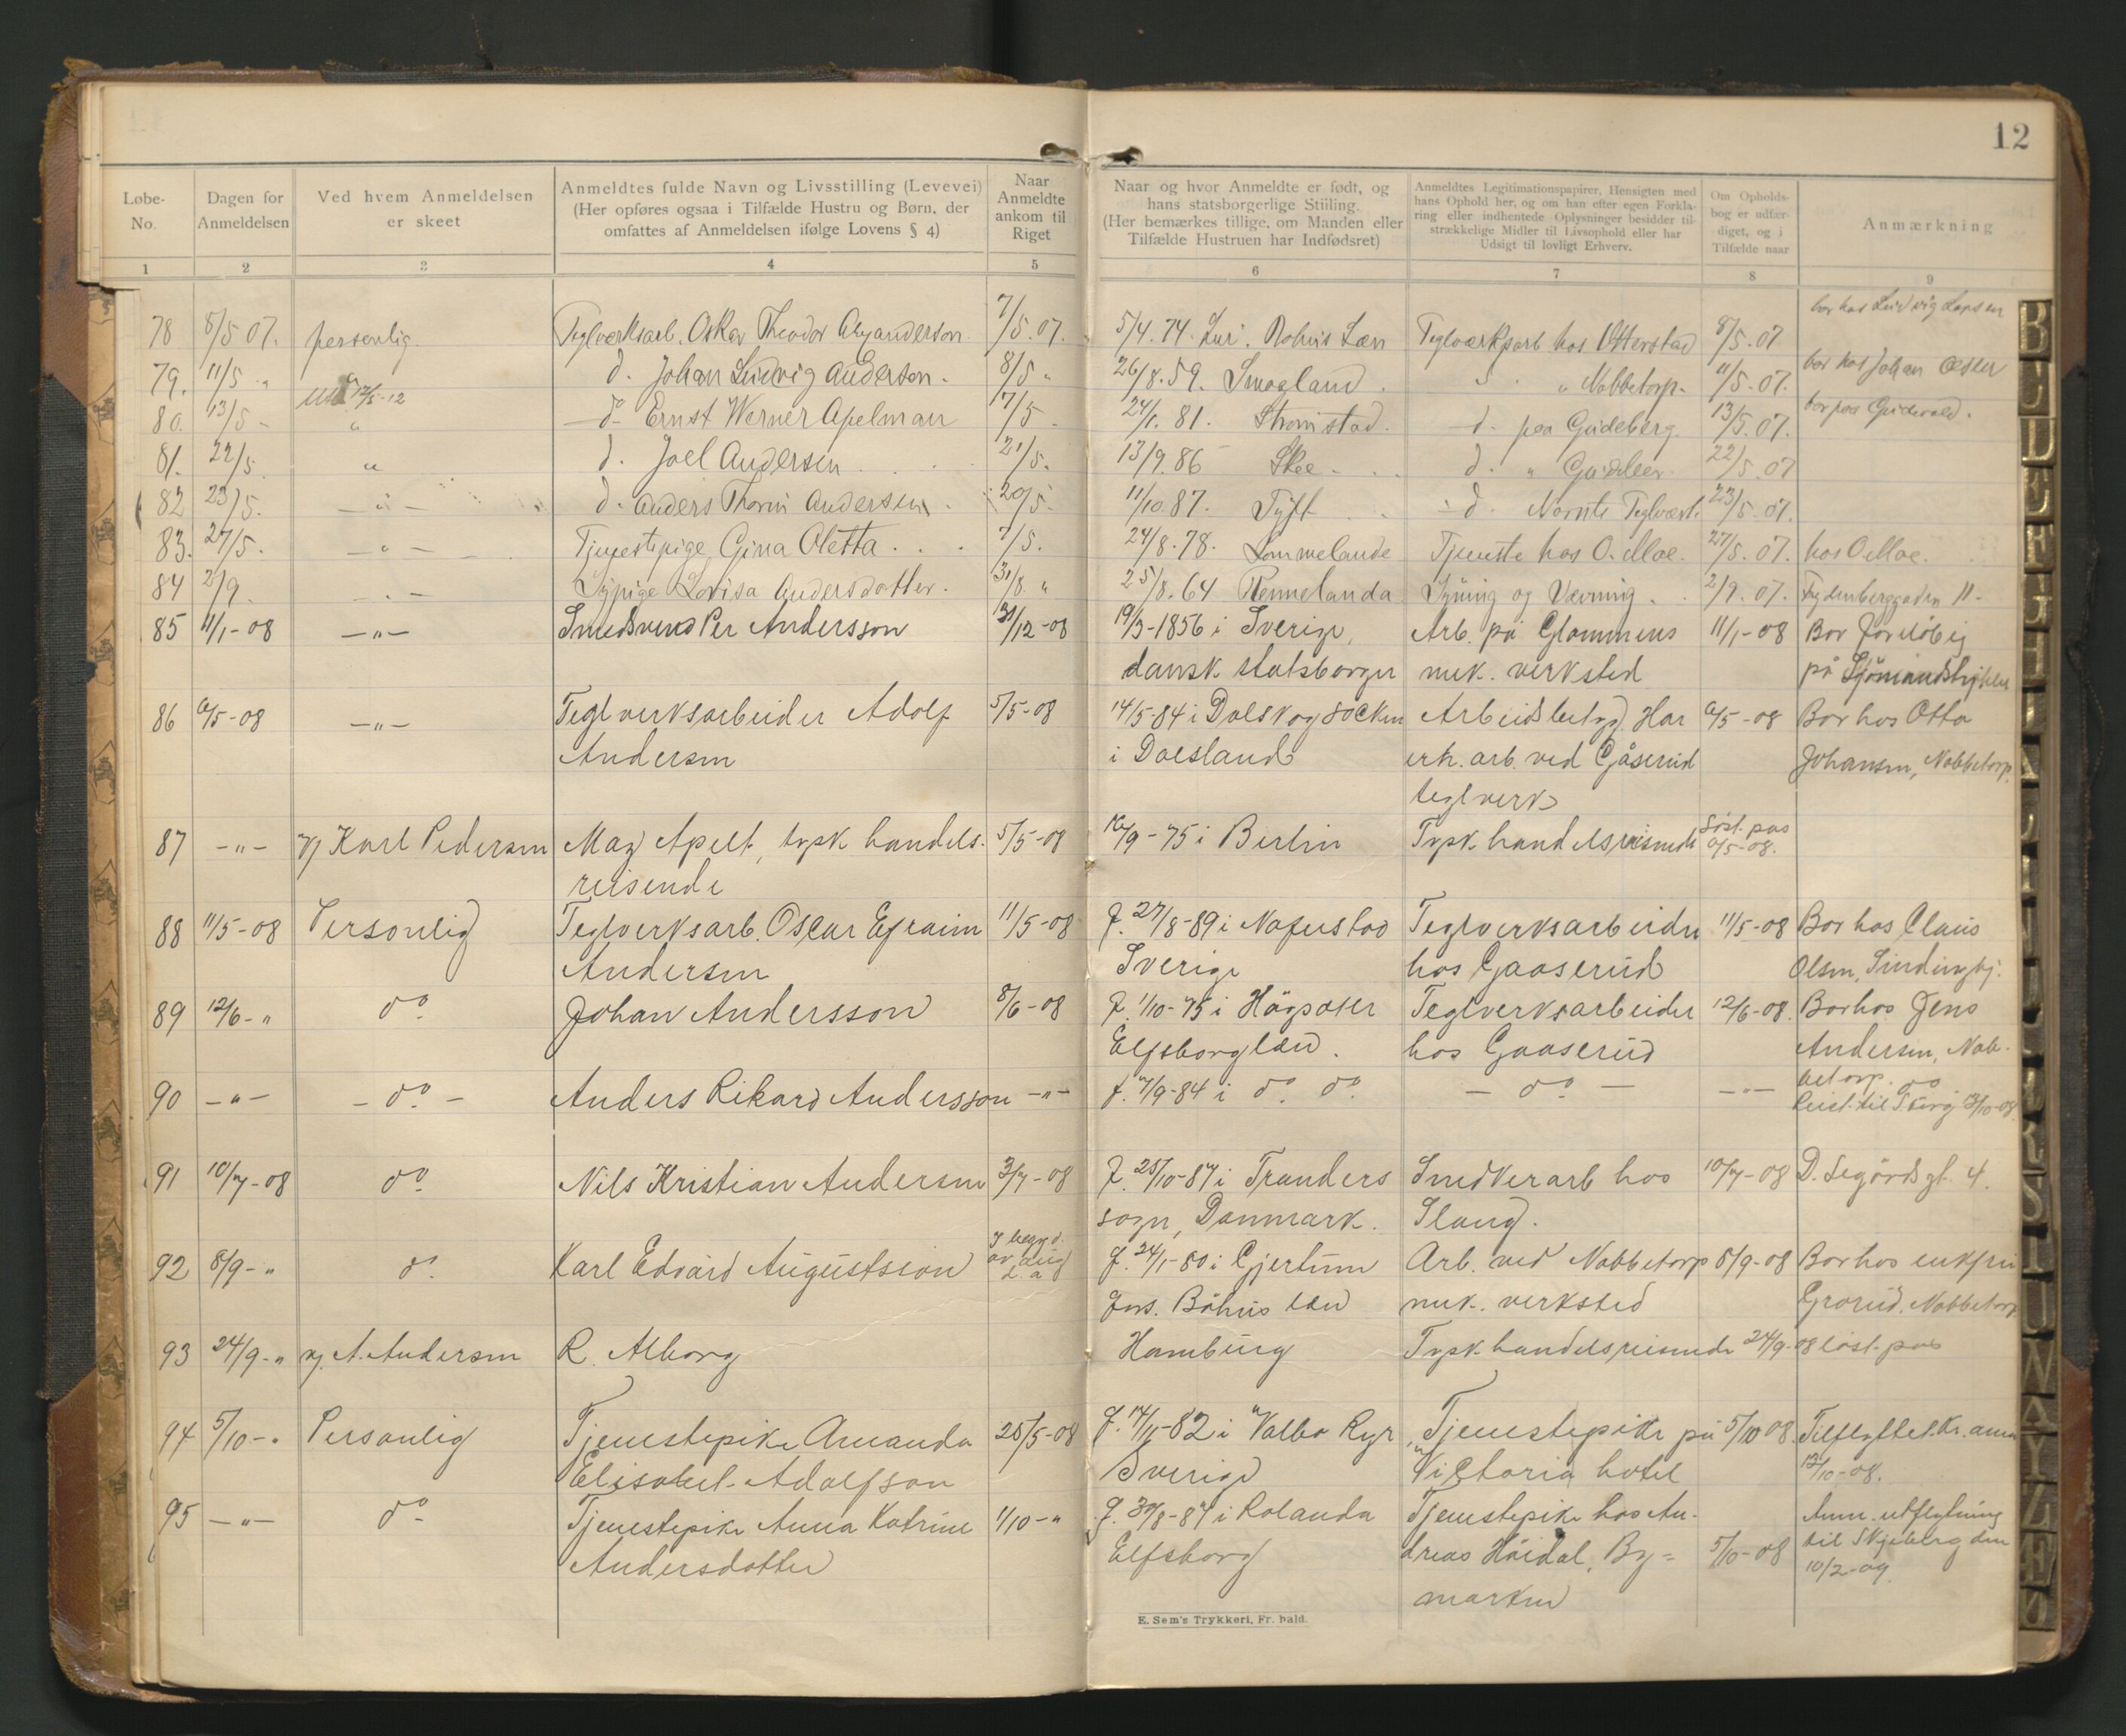 12
Løbe-No.
Dagen for Anmeldelsen
Ved hvem Anmeldelsen er skeet
Anmeldtes fulde Navn og Livsstilling (Levevei) (Her opføres ogsaa i Tilfælde Hustru og Børn, der omfattes af Anmeldelsen ifølge Lovens § 4)
Naar Anmeldte ankom til Riget
Naar og hvor Anmeldte er født, og hans statsborgerlige Stiiling. (Her bemærkes tillige, om Manden eller Tilfælde Hustruen har Indfødsret)
Anmeldtes Legitimationspapirer, Hensigten med hans Ophold her, og om han efter egen Forklaring eller indhentede Oplysninger besidder tilstrækkelige Midler til Livsophold eller har Udsigt til lovligt Erhverv.
Om Opholdsbog er udfærdiget, og i Tilfælde naar
Anmærkning
1 2 3 4 5 6 7 8 9
bor hos Ludvig Larsen
78 8/5 07. personlig Teglværksarb. Oskar Theodor Alexanderson 7/5.07. 5/4.74. Lur. Bohus Læn Teglværksarb hos Otterstad 8/5-07
79. 11/5 " d. Johan Ludvig Anderson. 8/5 " 26/8.59. Smogland. " Nabbetorp. 11/5-07. bor hos Johan Olsen
12/5-12
80. 13/5 - " d- Ernst Werner Apelman 7/5 - 24/1.81. Strømstad. d- paa Gudeberg. 13/5.07.
81. 22/5 " d. Joel Andersen 21/5. 13/9.86 Skee - d. " Gudeberg 22/5.07
82 23/5. - " - d. Anders Thorin Andersen. 20/5. 11/10.87. Tyft d. Nornte Teglværk. 23/5-07.
83. 27/5. - " - Tjenestepige Gina Oletta 7/5. 24/8.78. Lommelande Tjeneste hos O. Moe. 27/5.07. hos O. Moe.
84 2/9. - " - Sypige Lovisa Andersdotter. 31/8 " 25/8.64 Rennelanda Syning og Vævning. 2/9.07. Fydenberggaden 11-
85 11/1-08 - " - Smedsvend Per Andersson 31/12-08 19/3-1856 i Sverige, Arb. på Glommens 11/1-08 Bor foreløbig
dansk statsborger mek. verksted på
86 6/5-08 - " - Teglverksarbeider Adolf 5/5-08 14/5-84 i Dalskog socken Arbeidsbetyg. Har 6/5-08 Bor hos Otto
Andersen i Dalsland erh. arb. ved Gåserud Johansen, Nabbetorp.
teglverk
87 - " - v/ Karl Pedersen Max Apelt, tysk handels- 5/5-08 16/9-75 i Berlin Tysk handelsreisende løst. pas 6/5-08.
reisende
88 11/5-08 Personlig Teglverksarb. Oscar Efraim 11/5-08 f. 27/8-89 i Nafverstad Teglverksarbeider 11/5-08 Bor hos Claus
Andersen Sverige hos Gaaserud Olsen,
89 12/6-" do Johan Andersson 8/6-08 f. 1/10-75 i Högsäter Teglverksarbeider 12/6-08. Bor hos Jens
Elfsborg læn. hos Gaaserud Andersen, Nab-
betorp.
90 - " - - do - Anders Rikard Andersson - " - f. 7/9-84 i do. do. - do - - " - do
Reist til Sverig 13/10-08
91 10/7-08 do Nils Kristian Andersen 3/7-08 f. 25/10-87 i Tranders Smedverarb hos 10/7-08 D. Segårdsgt. 4.
sogn, Danmark. Stang.
92 8/9-" do. Karl Edvard Augustsson I begynd. av aug d. a f. 24/1-80 i Gjertum Arb. ved Nabbetorp 8/9-08 Bor hos enkefru
Gøs. Bohus læn mek. verksted Grorud, Nabbetorp
93 24/9-" v. A. Andersen R. Alborg Hamburg Tysk handelsreisende 24/9-08 løst. pas
94 5/10-" Personlig Tjenestepike Amanda 25/5-08 f. 14/11-82 i Valbo Ryr, Tjenestepike på 5/10 08. Tilflyttet Kr. ania
Elisabet Adolfson Sverige Victoria hotel 12/10-08.
95 - " - do Tjenestepike Anna Katrine 1/10-" f. 30/8-87 i Rolanda Tjenestepike hos An- Anm. utflytning
Andersdotter Elfsborg dreas Høidal, By= 5/10-08 til Skjeberg den
marken 10/2-09.
E. Sem's Trykkeri, Fr. hald.